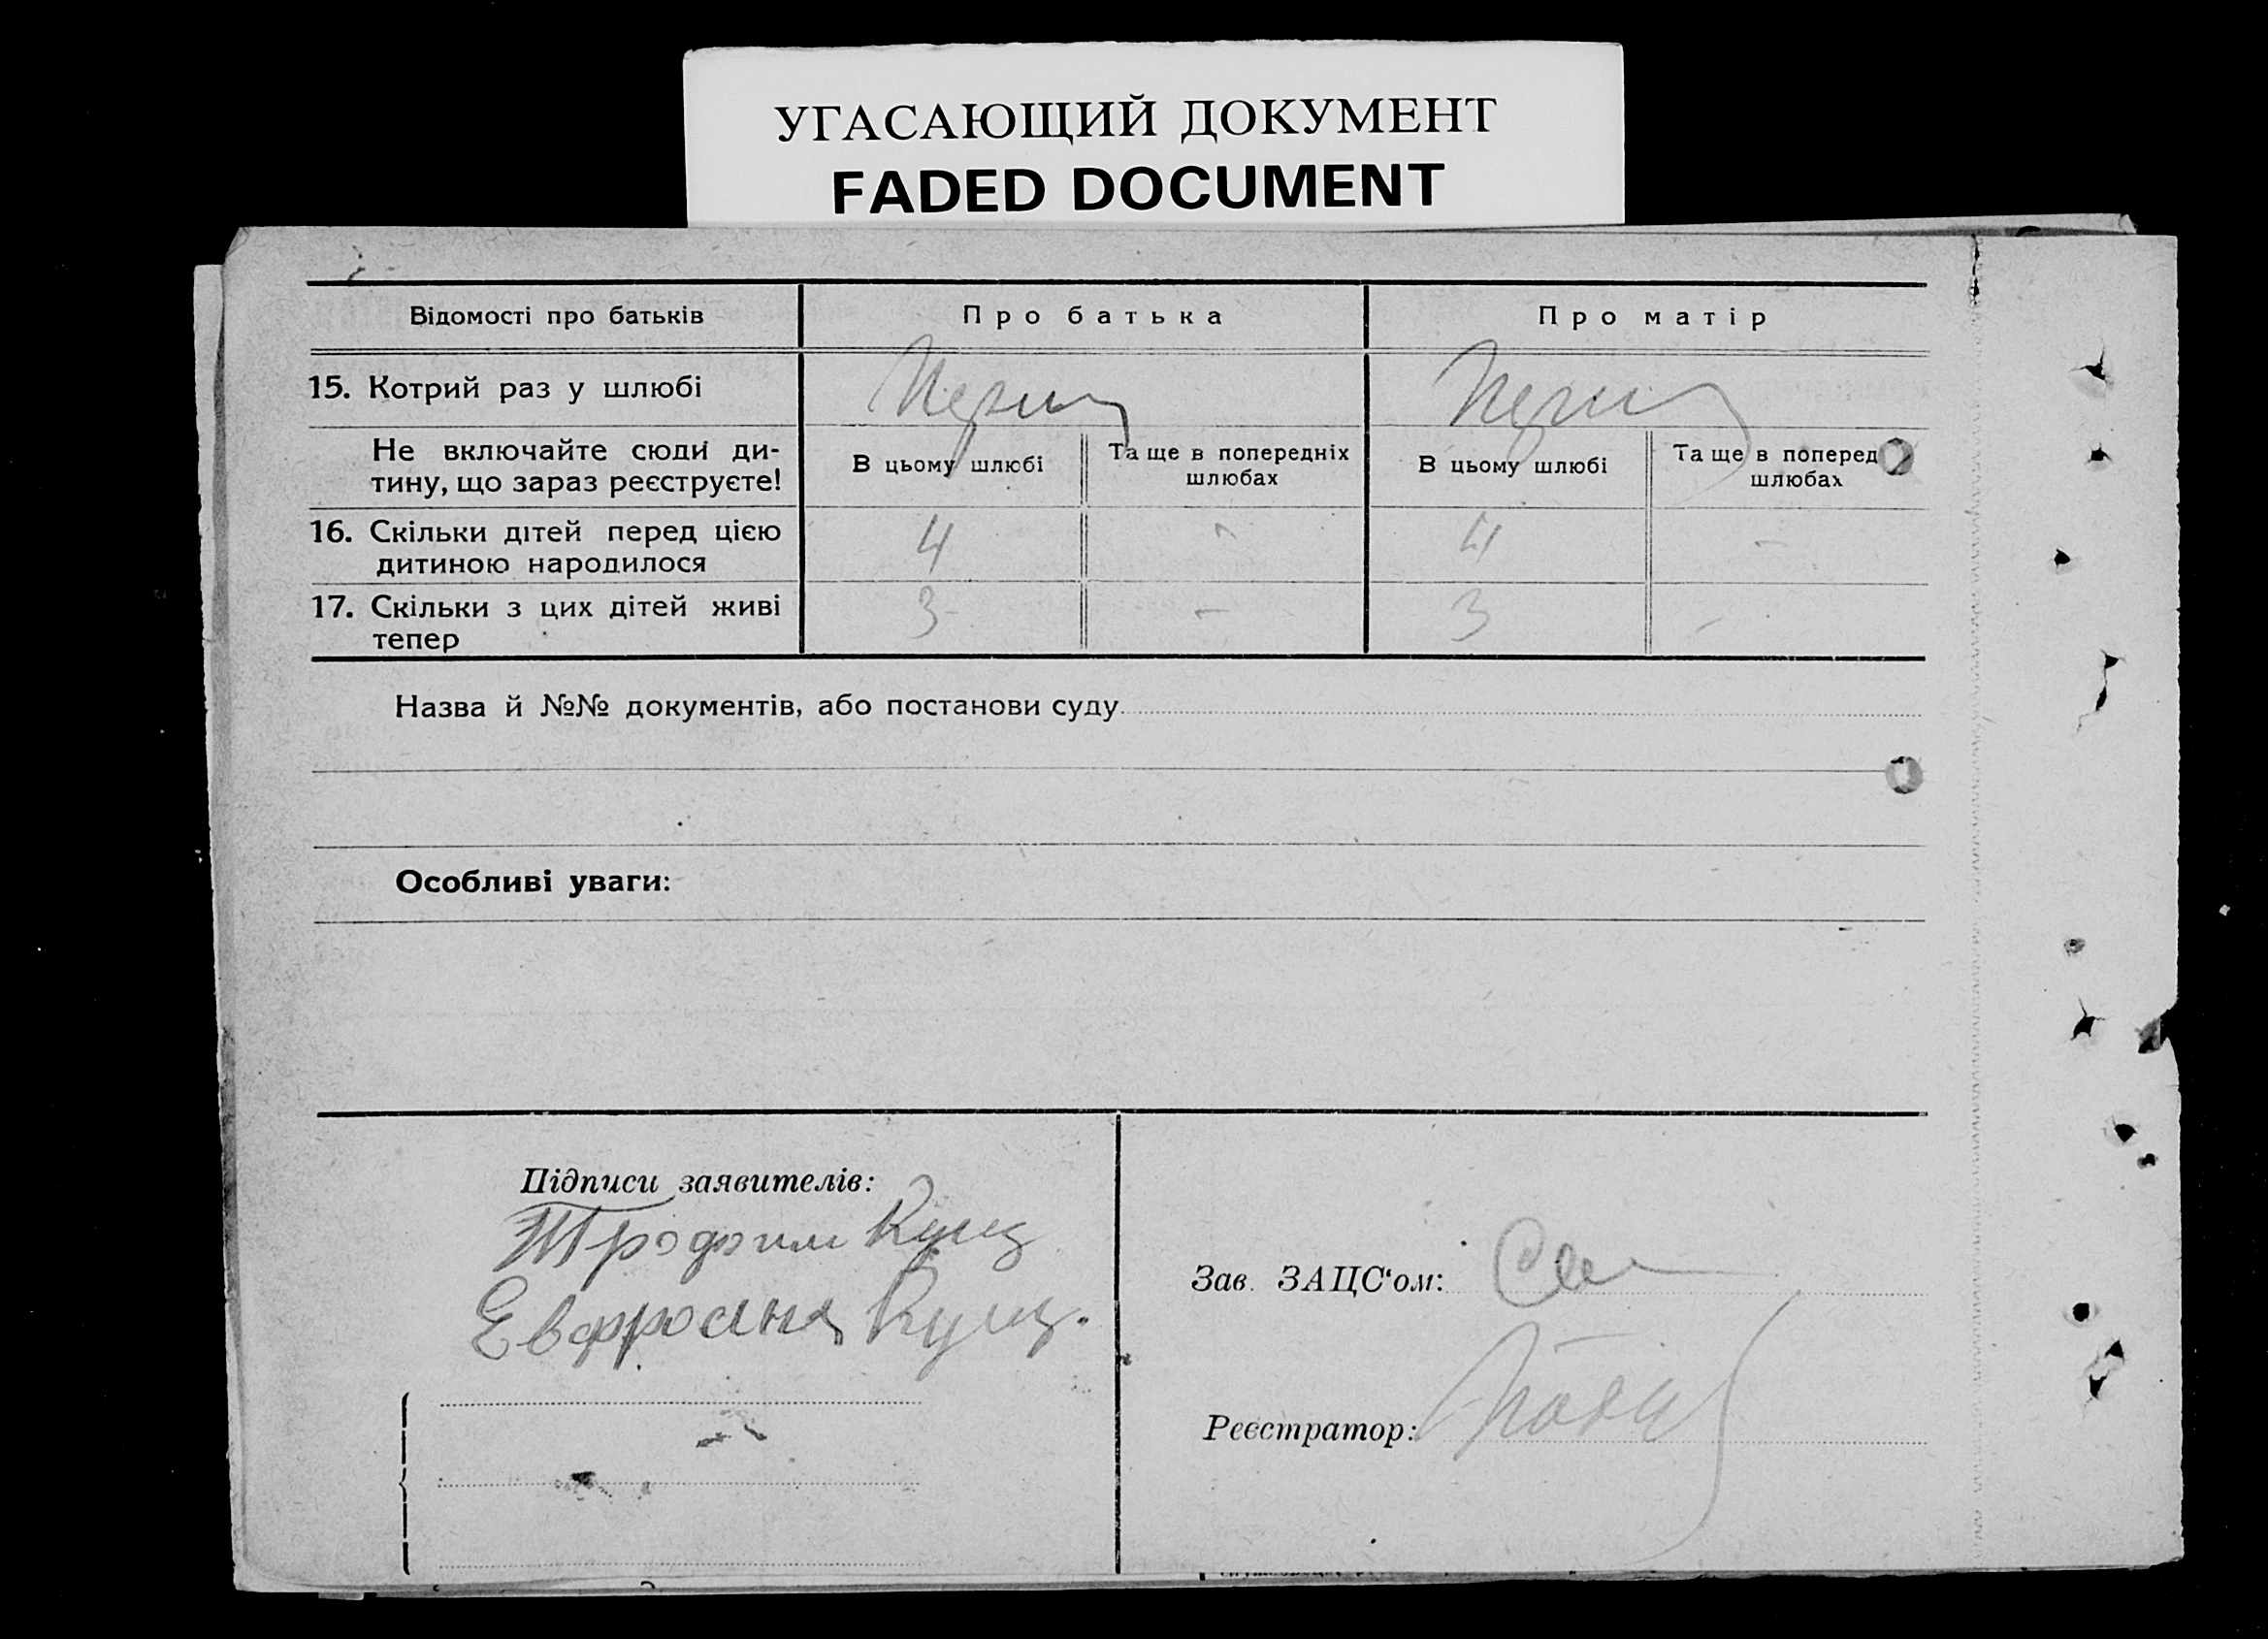 УГАСАЮЩИЙ ДОКУМЕНТ
FADED DOCUMENT
Відомості про батьків
Про батька
Про матір
15. Котрий раз у шлюбі
Не включайте сюди ди-
тину, що зараз реєструєте!
В цьому шлюбі
Та ще в попередніх
шлюбах
В цьому шлюбі
Та ще в поперед
шлюбах
16. Скільки дітей перед цією
дитиною народилося
4 - 4 -
17. Скільки з цих дітей живі
тепер
3 - 3 -
Назва й №№ документів, або постанови суду
Особливі уваги:
Підписи заявителів:
Трофим Кущ
Евфросина Кущ.
Зав. ЗАЦС‘ом:
Реєстратор: